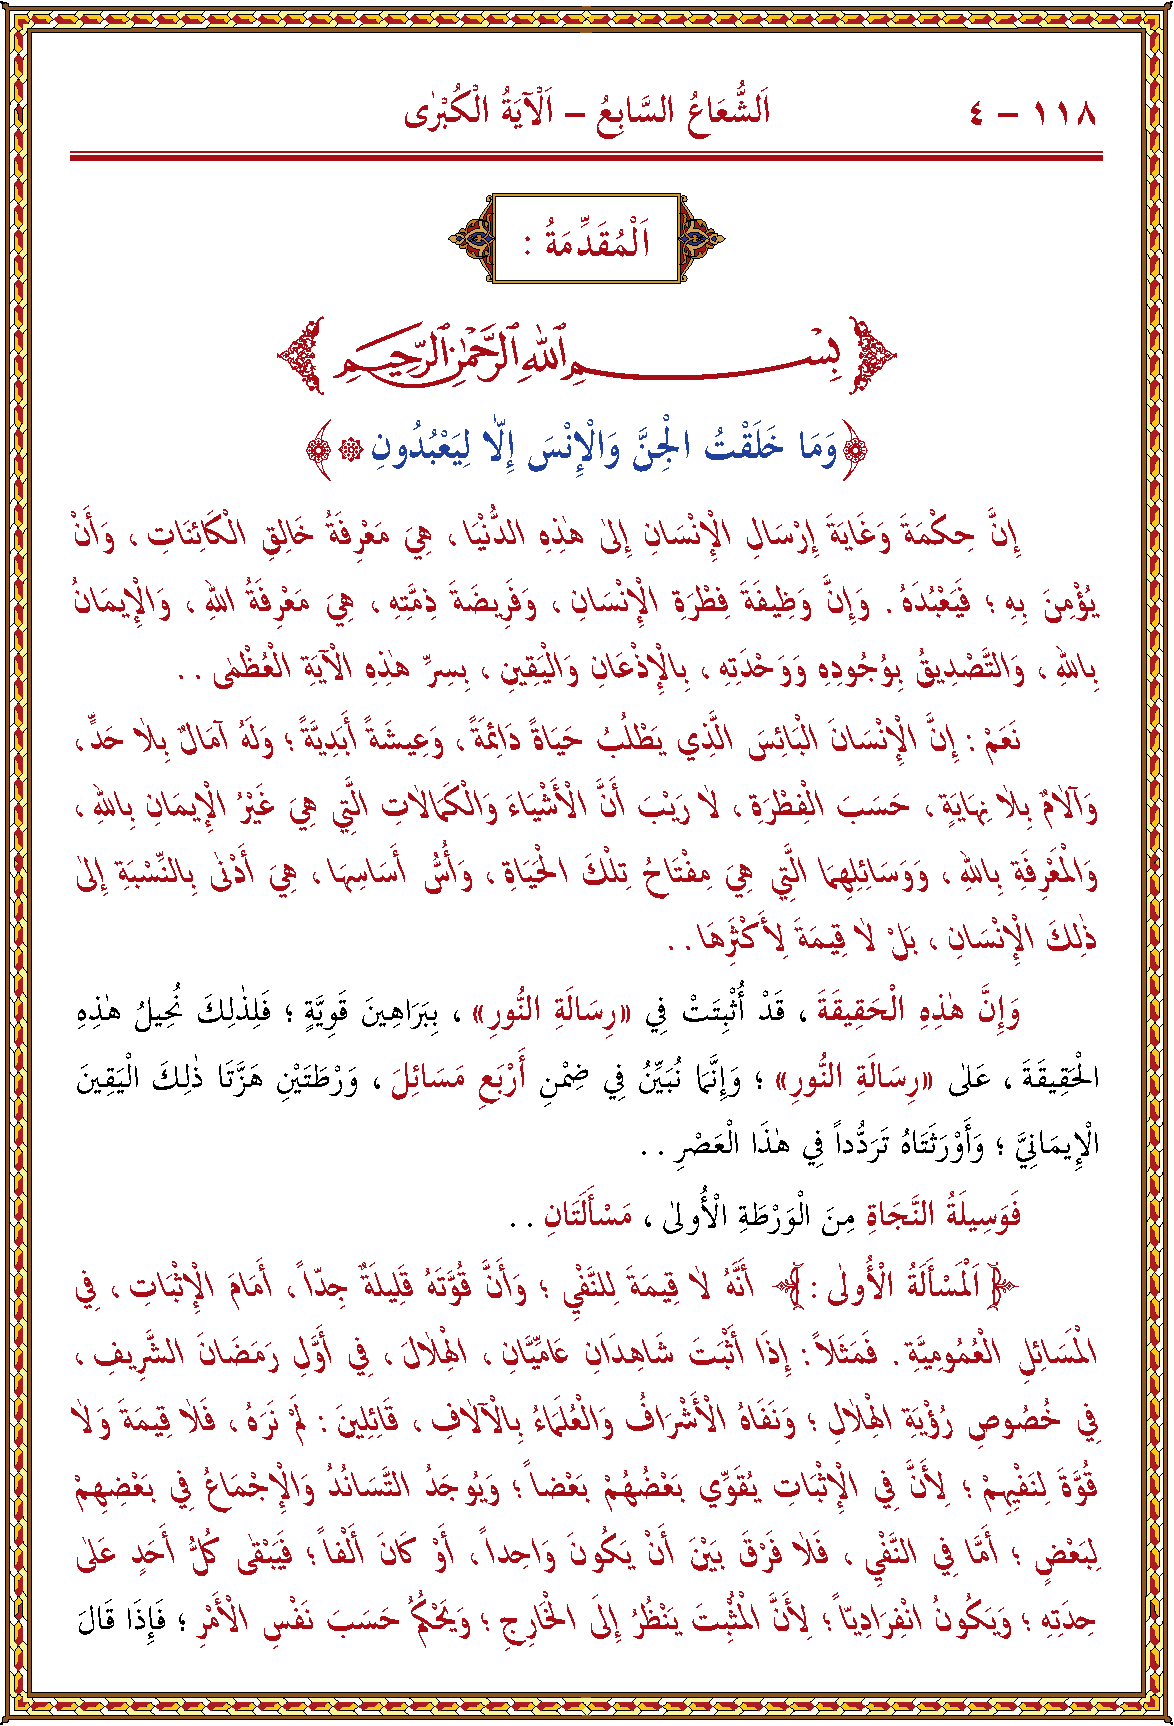 ١١٨ – ٤
اَلشُّعَاعُ السَّابِعُ – اَلْآيَةُ الْكُبْرٰى
اَلْمُقَدِّمَةُ :
بِسْمِ اللهِ الرَّحْمٰنِ الرَّحِيمِ
﴿وَمَا خَلَقْتُ الْجِنَّ وَالْإِنْسَ إِلَّا لِيَعْبُدُونِ ۞﴾
إِنَّ حِكْمَةَ وَغَايَةَ إِرْسَالِ الْإِنْسَانِ إِلىٰ هٰذِهِ الدُّنْيَا ، هِيَ مَعْرِفَةُ خَالِقِ الْكَائِنَاتِ ، وَأَنْ
يُؤْمِنَ بِهِ ؛ فَيَعْبُدَهُ . وَإِنَّ وَظِيفَةَ فِطْرَةِ الْإِنْسَانِ ، وَفَرِيضَةَ ذِمَّتِهِ ، هِيَ مَعْرِفَةُ اللهِ ، وَالْإِيمَانُ
بِاللهِ ، وَالتَّصْدِيقُ بِوُجُودِهِ وَوَحْدَتِهِ ، بِالْإِذْعَانِ وَالْيَقِينِ ، بِسِرِّ هٰذِهِ الْآيَةِ الْعُظْمٰى . .
نَعَمْ : إِنَّ الْإِنْسَانَ الْبَائِسَ الَّذِي يَطْلُبُ حَيَاةً دَائِمَةً ، وَعِيشَةً أَبَدِيَّةً ؛ وَلَهُ آمَالٌ بِلَا حَدٍّ ،
وَآلَامٌ بِلَا نِهَايَةٍ ، حَسَبَ الْفِطْرَةِ ، لَا رَيْبَ أَنَّ الْأَشْيَاءَ وَالْكَمَالَاتِ الَّتِي هِيَ غَيْرُ الْإِيمَانِ بِاللهِ ،
وَالْمَعْرِفَةِ بِاللهِ ، وَوَسَائِلِهِمَا الَّتِي هِيَ مِفْتَاحُ تِلْكَ الْحَيَاةِ ، وَأُسُّ أَسَاسِهَا ، هِيَ أَدْنىٰ بِالنِّسْبَةِ إِلىٰ
ذٰلِكَ الْإِنْسَانِ ، بَلْ لَا قِيمَةَ لِأَكْثَرِهَا . .
وَإِنَّ هٰذِهِ الْحَقِيقَةَ ، قَدْ أُثْبِتَتْ فِي «رِسَالَةِ النُّورِ» ، بِبَرَاهِينَ قَوِيَّةٍ ؛ فَلِذٰلِكَ نُحِيلُ هٰذِهِ
الْحَقِيقَةَ ، عَلىٰ «رِسَالَةِ النُّورِ» ؛ وَإِنَّمَا نُبَيِّنُ فِي ضِمْنِ أَرْبَعِ مَسَائِلَ ، وَرْطَتَيْنِ هَزَّتَا ذٰلِكَ الْيَقِينَ
الْإِيمَانِيَّ ؛ وَأَوْرَثَتَاهُ تَرَدُّداً فِي هٰذَا الْعَصْرِ . .
فَوَسِيلَةُ النَّجَاةِ مِنَ الْوَرْطَةِ الْأُولىٰ ، مَسْأَلَتَانِ . .
﴿اَلْمَسْأَلَةُ الْأُولىٰ :﴾ أَنَّهُ لَا قِيمَةَ لِلنَّفْيِ ؛ وَأَنَّ قُوَّتَهُ قَلِيلَةٌ جِدّاً ، أَمَامَ الْإِثْبَاتِ ، فِي
الْمَسَائِلِ الْعُمُومِيَّةِ . فَمَثَلاً : إِذَا أَثْبَتَ شَاهِدَانِ عَامِّيَّانِ ، الْهِلَالَ ، فِي أَوَّلِ رَمَضَانَ الشَّرِيفِ ،
فِي خُصُوصِ رُؤْيَةِ الْهِلَالِ ؛ وَنَفَاهُ الْأَشْرَافُ وَالْعُلَمَاءُ بِالْآلَافِ ، قَائِلِينَ : لَمْ نَرَهُ ، فَلَا قِيمَةَ وَلَا
قُوَّةَ لِنَفْيِهِمْ ؛ لِأَنَّ فِي الْإِثْبَاتِ يُقَوِّي بَعْضُهُمْ بَعْضاً ؛ وَيُوجَدُ التَّسَانُدُ وَالْإِجْمَاعُ فِي بَعْضِهِمْ
لِبَعْضٍ ؛ أَمَّا فِي النَّفْيِ ، فَلَا فَرْقَ بَيْنَ أَنْ يَكُونَ وَاحِداً ، أَوْ كَانَ أَلْفاً ؛ فَيَبْقىٰ كُلُّ أَحَدٍ عَلىٰ
حِدَتِهِ ؛ وَيَكُونُ انْفِرَادِيّاً ؛ لِأَنَّ الْمُثْبِتَ يَنْظُرُ إِلَى الْخَارِجِ ؛ وَيَحْكُمُ حَسَبَ نَفْسِ الْأَمْرِ ؛ فَإِذَا قَالَ